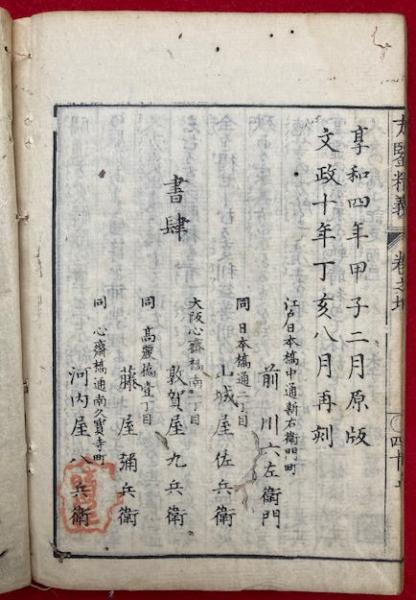 方鑒精義
卷之地
四十
享和四年甲子二月原版
文政十年丁亥八月再刻
江戸日本橋中通新右衛門町
前川六左衛門
同 日本橋通二丁目
山城屋佐兵衛
書肆
大阪心斎橋南一丁目
敦賀屋九兵衛
同 高麗橋壹丁目
藤屋彌兵衛
同 心齋橋通南久寳寺町
河内屋八兵衛